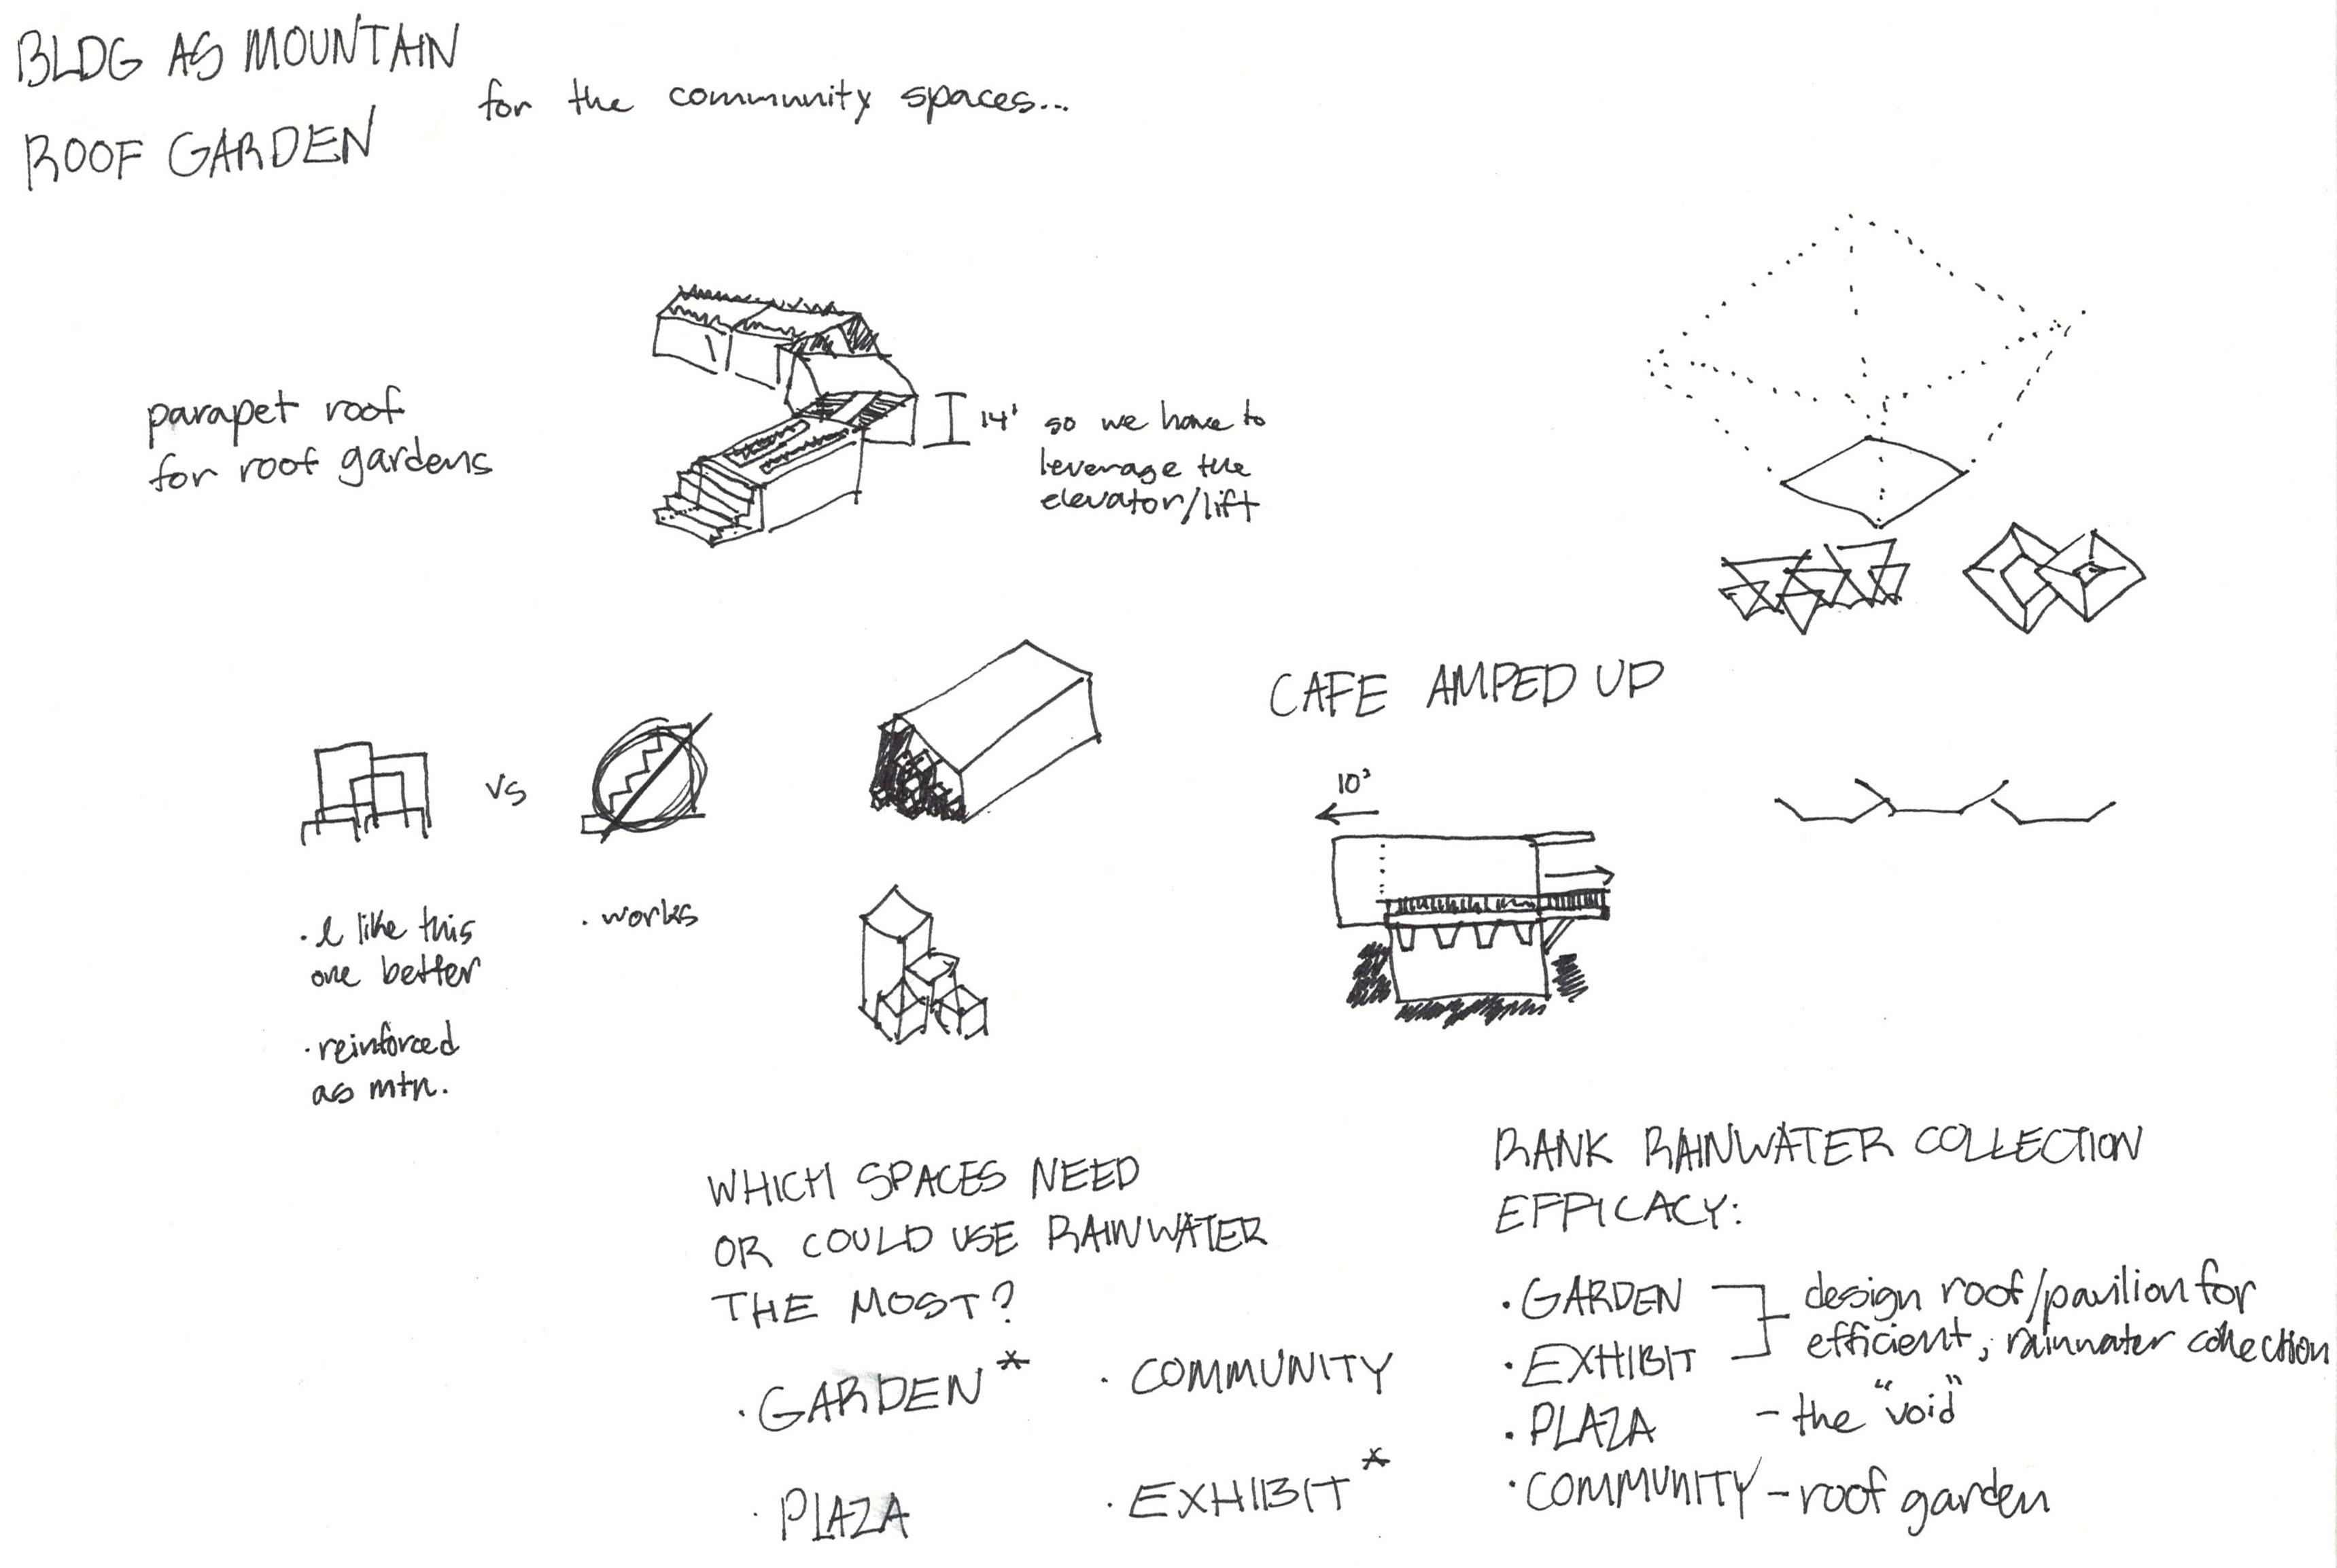 BLDG AS MOUNTAIN
ROOF GARDEN
for the community spaces...
parapet roof
for roof gardens
14' so we have to
leverage the
elevator/lift
vs
• I like this
one better
• reinforced
as mtn.
• works
CAFE AMPED UP
10'
WHICH SPACES NEED
OR COULD USE RAINWATER
THE MOST?
• GARDEN*
• COMMUNITY
• PLAZA
• EXHIBIT*
RANK RAINWATER COLLECTION
EFFICACY:
• GARDEN
• EXHIBIT
design roof/pavilion for
efficient, rainwater collection
• PLAZA - the "void"
• COMMUNITY - roof garden